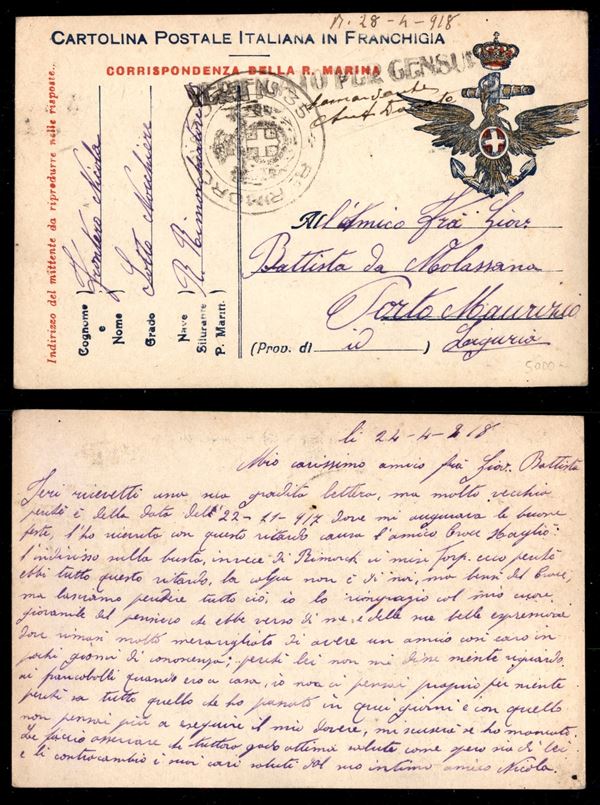 R. 28-4-918
CARTOLINA POSTALE ITALIANA IN FRANCHIGIA
CORRISPONDENZA DELLA R. MARINA
PER CENSU
Comandante
Indirizzo del mittente da riprodurre nelle risposte..
Cognome e Nome } Frontero Nicola
Grado Sotto Nocchiere
Nave Silurante P. Marin. } R. Rimorchiatore
All'Amico Frà Giov.
Battista da Molassana
Porto Maurizio
(Prov. di id ) Liguria
5000
li 24-4-918
Mio carissimo amico frà Giov. Battista
Ieri ricevetti una sua gradita lettera, ma molto vecchia
perchè è della data dell' 22-11-917 dove mi augurava le buone
feste, l'ho ricevuta con questo ritardo causa l'amico Croce
l'indirisso sulla busta, invece di Rimorch ci mise Torp. ecco perchè
ebbi tutto questo ritardo, la colpa non è di noi, ma bensì del Croce,
ma lasciamo perdere tutto ciò, io lo ringrazio col mio cuore
giovanile del pensiero che ebbe verso di me, e delle sue belle espressioni
dove rimasi molto meravigliato di avere un amico così caro in
pochi giorni di conoscenza; perchè lei non mi disse niente riguardo
ai francobolli quando ero a casa, io non ci pensai proprio per niente
perchè sa tutto quello che ho passato in quei giorni e con quello
non pensai più a eseguire il mio dovere, mi scuserà se ho mancato.
Le faccio osservare che tuttora godo ottima salute come spero sia di lei
e li contracambio i suoi cari saluti dal suo intimo amico Nicola.